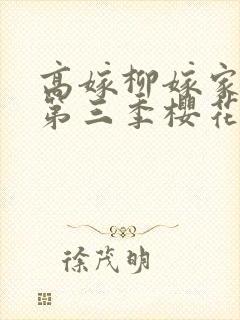 高嫁柳嫁家
第三季樱花
徐茂明